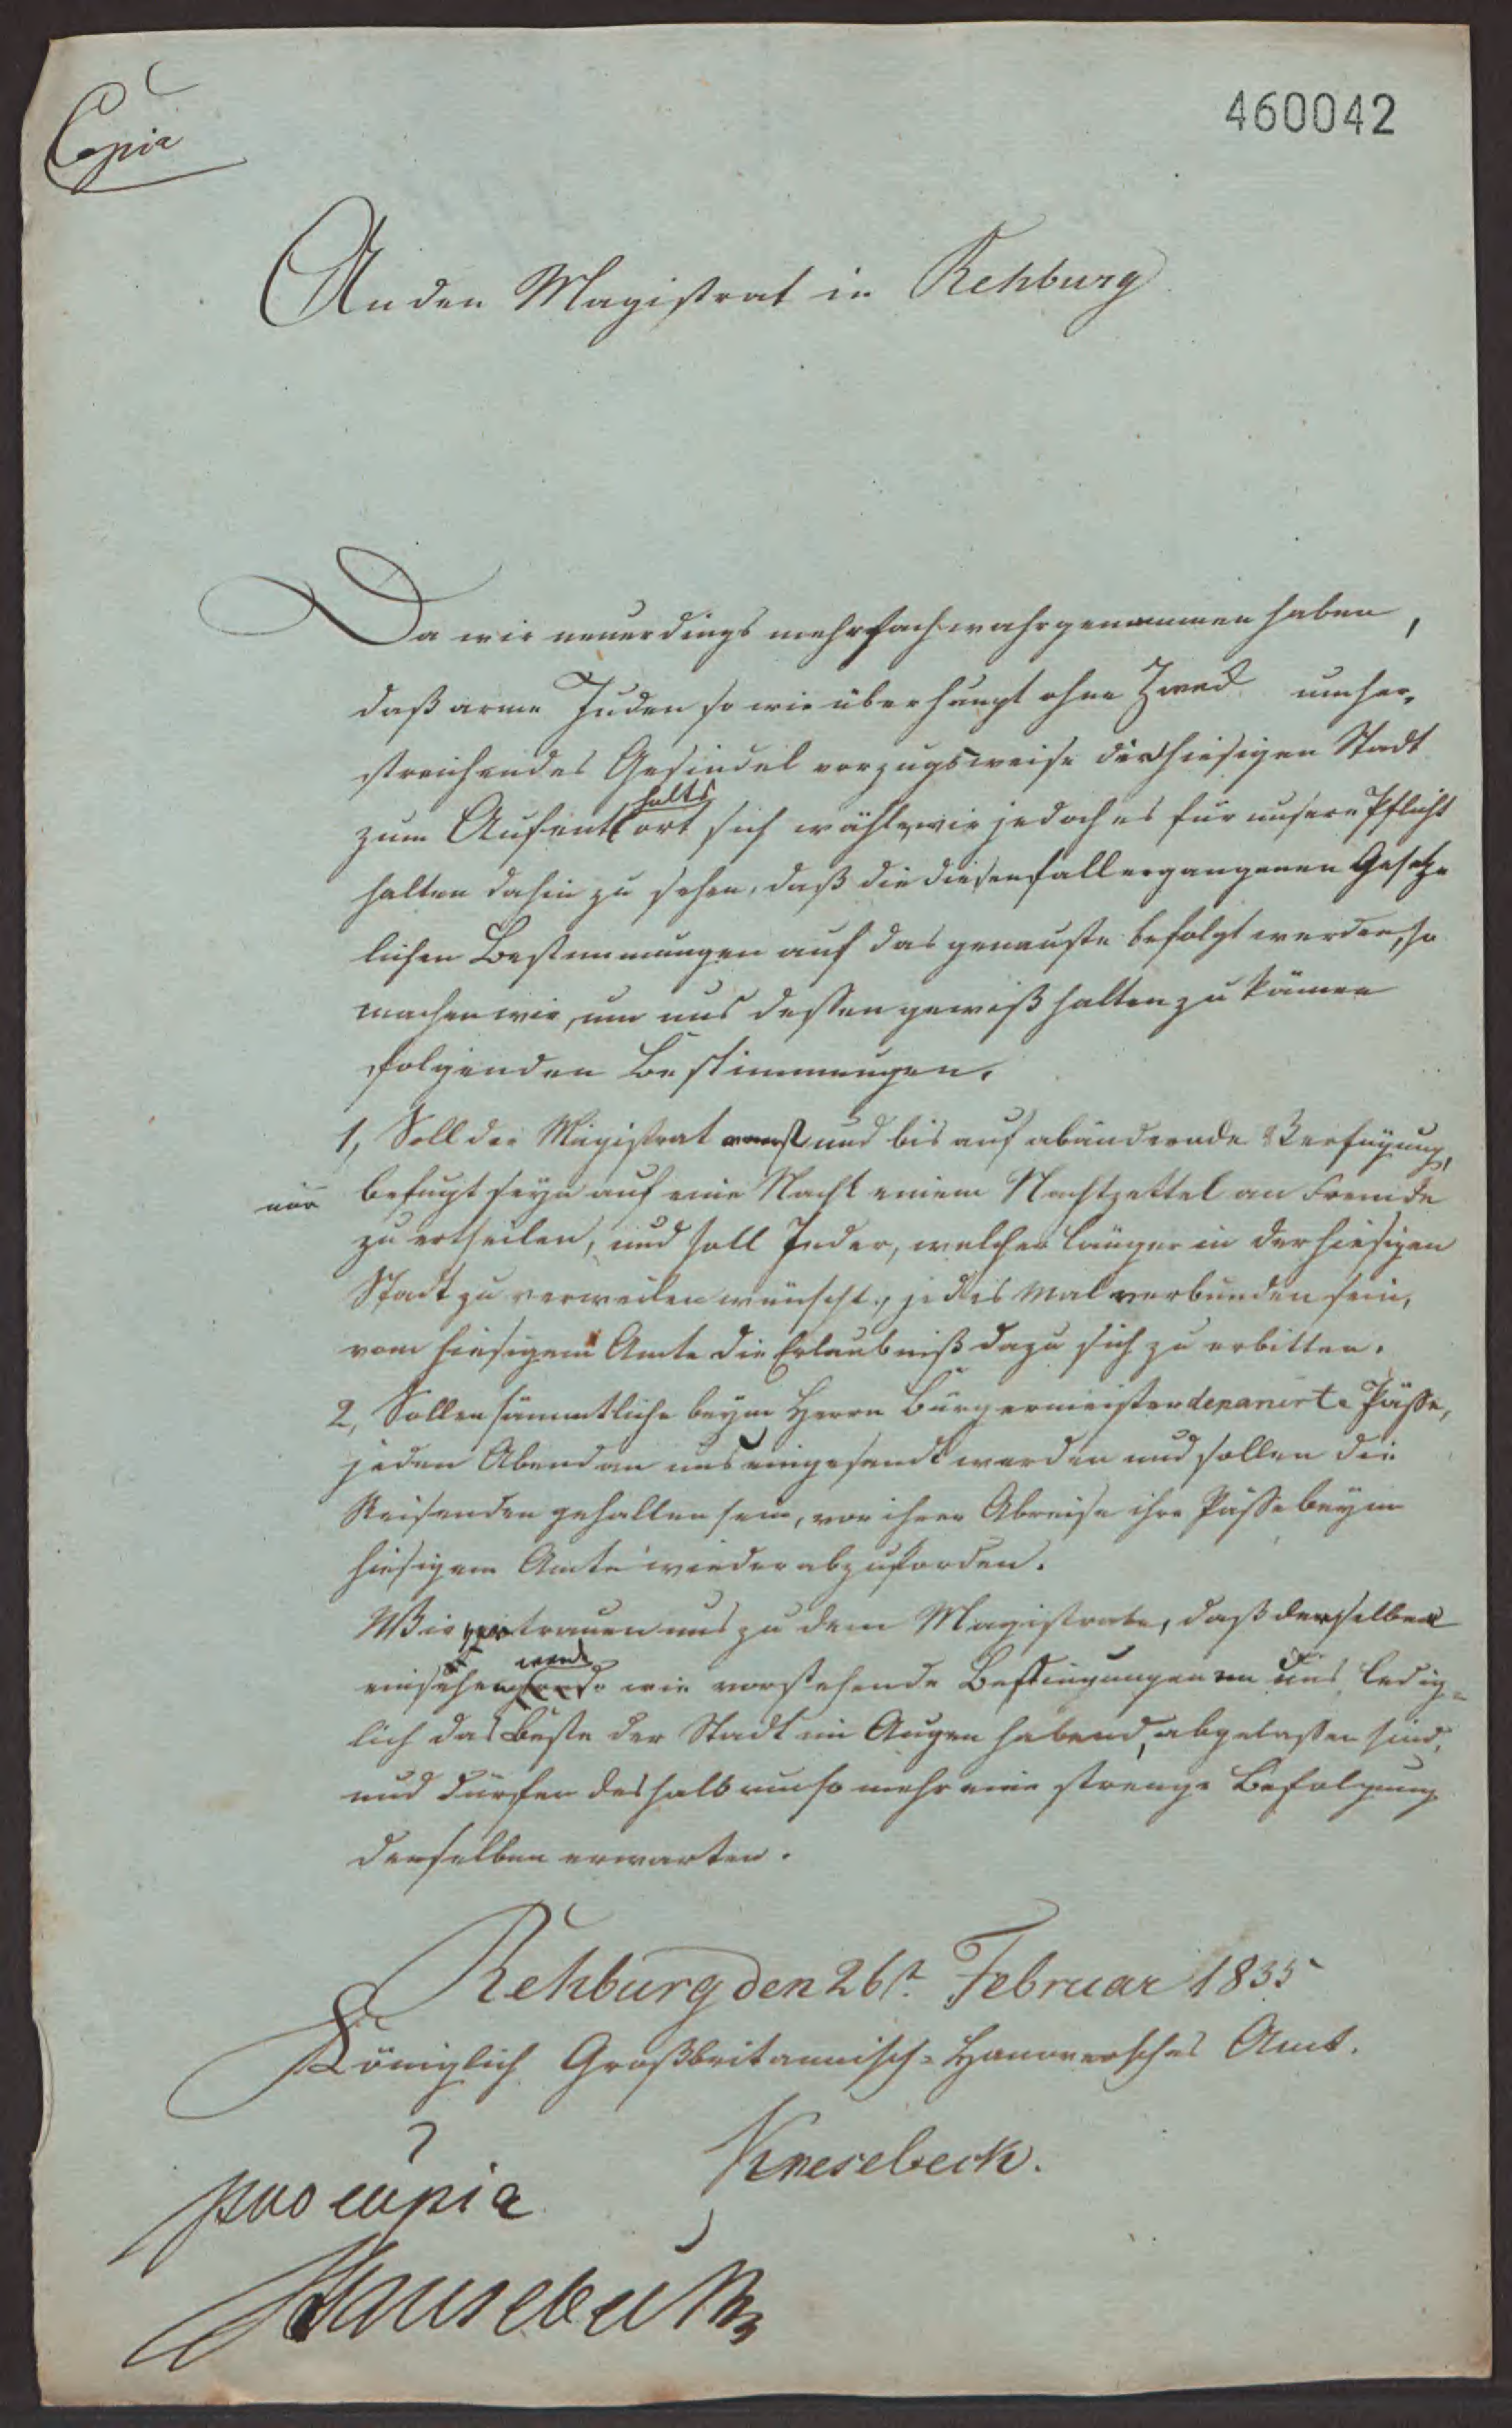 Copia
460042
An den Magistrat in Rehburg
Da wir neuerdings mehrfach wahrgenommen haben,
daß arme Juden so wie überhaupt ohne Zweck umher-
streichendes Gesindel vorzugsweise der hiesigen Stadt
halts
zum Aufentort sich wählt, wir jedoch es für unsere Pflicht
halten dahin zu sehen, daß die diesenfall ergangenen Gesetz-
lichen Bestimmungen auf das genauste befolgt werden, so
machen wir, um uns dessen gewiß halten zu können
folgenden Bestimmungen.
1, Soll der Magistrat und bis auf abändernde Verfügung,
nur befugt seyn auf eine Nacht einem Nachtzettel an Fremde
zu ertheilen, und soll Jeder, welcher länger in der hiesigen
Stadt zu verweilen wünscht, jedes Mal verbunden sein,
vom hiesigem Amte die Erlaubniß dazu sich zu erbitten.
2, Sollen sämmtliche beym Herrn Bürgermeister deponirte Pässe,
jeden Abend an uns eingesandt werden und sollen die
Reisenden gehalten sein, vor ihrer Abreise ihre Pässe beym
hiesigem Amte wieder abzufordern.
Wir vertrauen uns zu dem Magistrate, daß derselbe
werde
einsehen wie vorstehende Bestimmungen von uns, ledig-
lich das Beste der Stadt im Augen habend, abgelassen sind,
und dürfen deshalb um so mehr eine strenge Befolgung
derselben erwarten.
Rehburg den 26t. Februar 1835
Königlich Großbritannisch-Hanoversches Amt.
Knesebeck.
pro copia